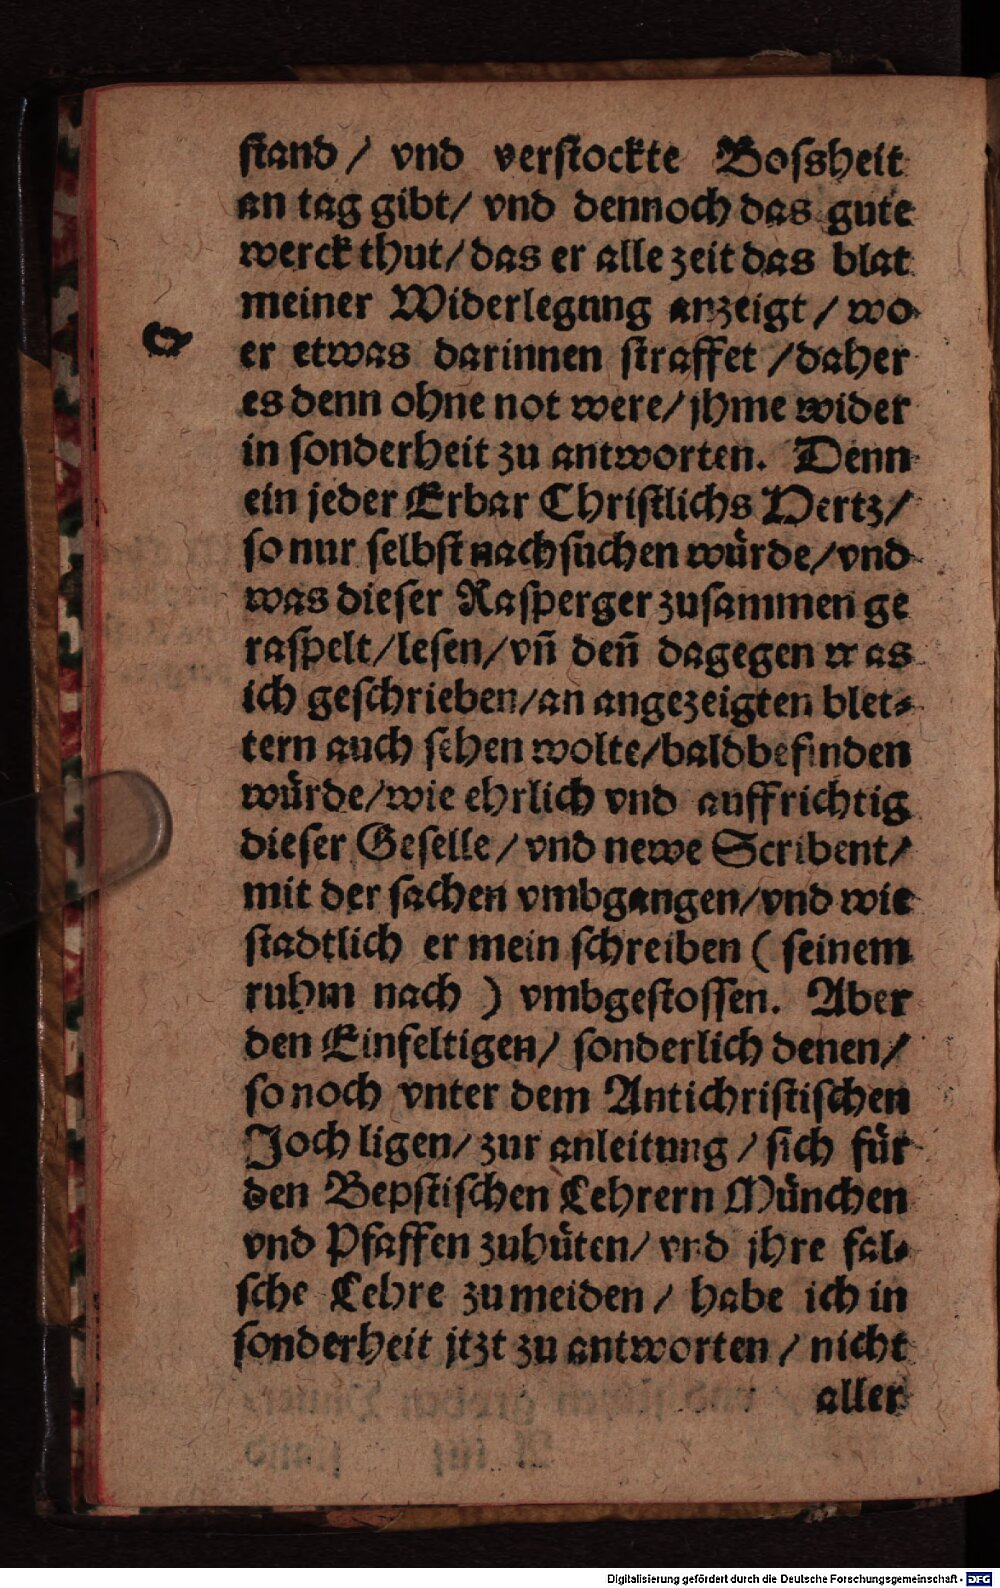 stand / vnd verstockte Bossheit
an tag gibt/ vnd dennoch das gute
werck thut/ das er alle zeit das blat
meiner Widerlegung anzeigt / wo
er etwas darinnen straffet / daher
es denn ohne not were/ jhme wider
in sonderheit zu antworten. Denn
ein jeder Erbar Christlichs Hertz/
so nur selbst nachsuchen würde/ vnd
was dieser Rasperger zusammen ge
raspelt/ lesen/ vñ deñ dagegen was
ich geschrieben/ an angezeigten blet⸗
tern auch sehen wolte/ bald befinden
würde/ wie ehrlich vnd auffrichtig
dieser Geselle / vnd newe Scribent/
mit der sachen vmbgangen/ vnd wie
stadtlich er mein schreiben ( seinem
ruhm nach ) vmbgestossen. Aber
den Einfeltigen/ sonderlich denen/
so noch vnter dem Antichristischen
Joch ligen/ zur anleitung / sich für
den Bepstischen Lehrern München
vnd Pfaffen zuhüten/ vnd jhre fal⸗
sche Lehre zu meiden / habe ich in
sonderheit jtzt zu antworten / nicht
aller
Digitalisierung gefördert durch die Deutsche Forschungsgemeinschaft - DFG